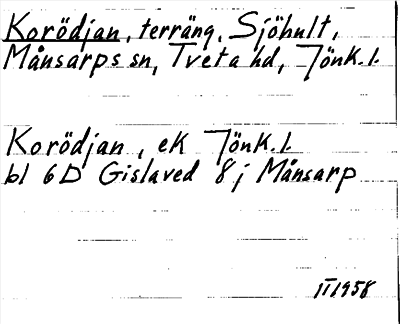 Korödjan, terräng, Sjöhult,
Månsarps sn, Tveta hd, Jönk. l.
Korödjan, ek Jönk. l.
bl 6D Gislaved 8 j Månsarp
II 1958